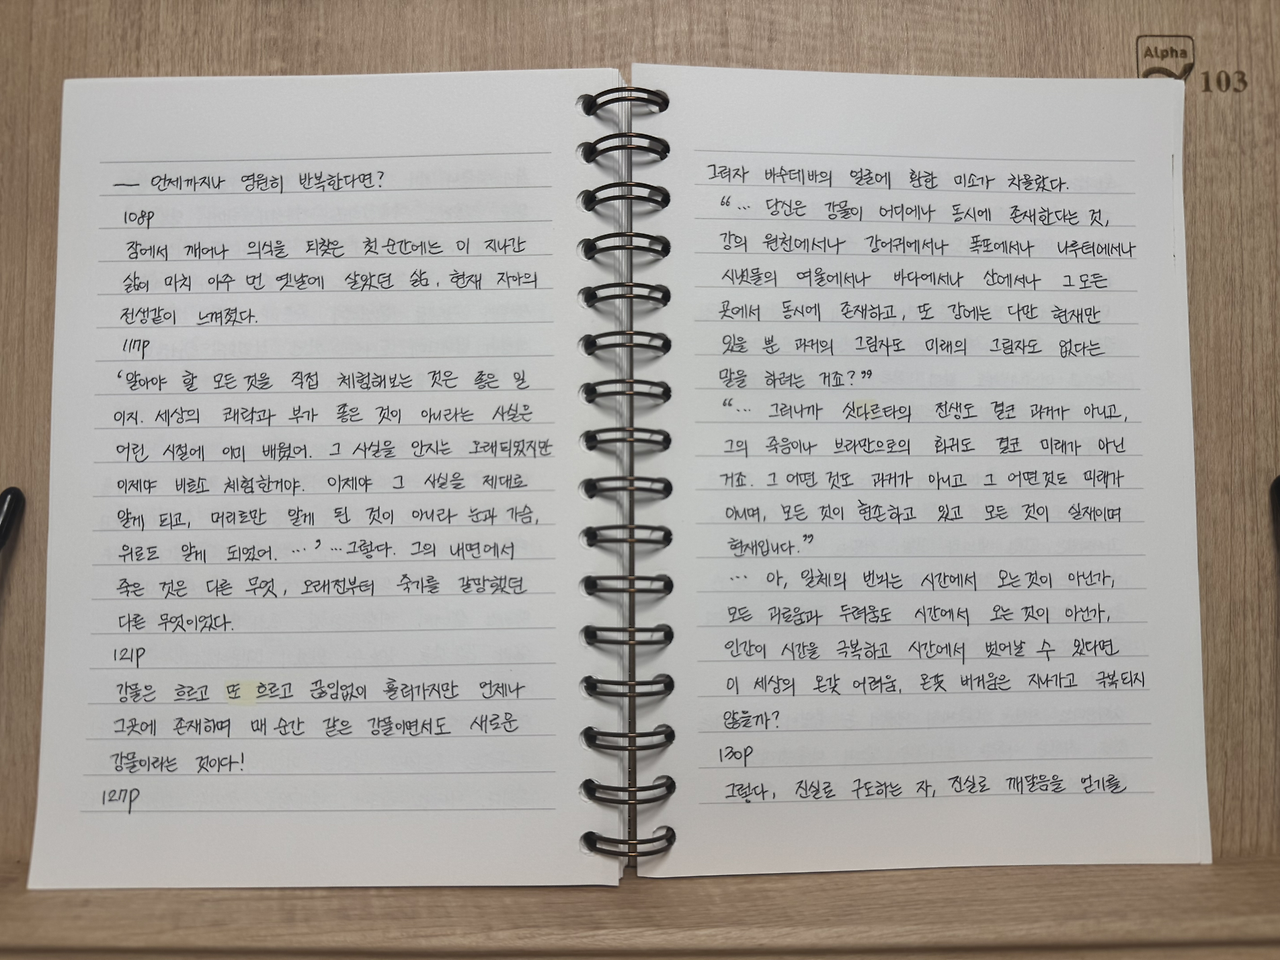 Alpha
103
— 언제까지나 영원히 반복한다면?
108p
잠에서 깨어나 의식을 되찾은 첫 순간에는 이 지나간
삶이 마치 아주 먼 옛날에 살았던 삶, 현재 자아의
전생같이 느껴졌다.
117p
‘알아야 할 모든 것을 직접 체험해보는 것은 좋은 일
이지. 세상의 쾌락과 부가 좋은 것이 아니라는 사실은
어린 시절에 이미 배웠어. 그 사실을 안지는 오래되었지만
이제야 비로소 체험한거야. 이제야 그 사실을 제대로
알게 되고, 머리로만 알게 된 것이 아니라 눈과 가슴,
위로도 알게 되었어. …’ …그렇다. 그의 내면에서
죽은 것은 다른 무엇, 오래전부터 죽기를 갈망했던
다른 무엇이었다.
121p
강물은 흐르고 또 흐르고 끊임없이 흘러가지만 언제나
그곳에 존재하며 매 순간 같은 강물이면서도 새로운
강물이라는 것이다!
127p
그러자 바수데바의 얼굴에 환한 미소가 차올랐다.
“… 당신은 강물이 어디에나 동시에 존재한다는 것,
강의 원천에서나 강어귀에서나 폭포에서나 나루터에서나
시냇물의 여울에서나 바다에서나 산에서나 그 모든
곳에서 동시에 존재하고, 또 강에는 다만 현재만
있을 뿐 과거의 그림자도 미래의 그림자도 없다는
말을 하려는 거죠?”
“… 그러니까 싯다르타의 전생도 결코 과거가 아니고,
그의 죽음이나 브라만으로의 회귀도 결코 미래가 아닌
거죠. 그 어떤 것도 과거가 아니고 그 어떤것도 미래가
아니며, 모든 것이 현존하고 있고 모든 것이 실재이며
현재입니다.”
… 아, 일체의 번뇌는 시간에서 오는것이 아닌가,
모든 괴로움과 두려움도 시간에서 오는 것이 아닌가,
인간이 시간을 극복하고 시간에서 벗어날 수 있다면
이 세상의 온갖 어려움, 온갖 버거움은 지나가고 극복되지
않을까?
130p
그렇다, 진실로 구도하는 자, 진실로 깨달음을 얻기를